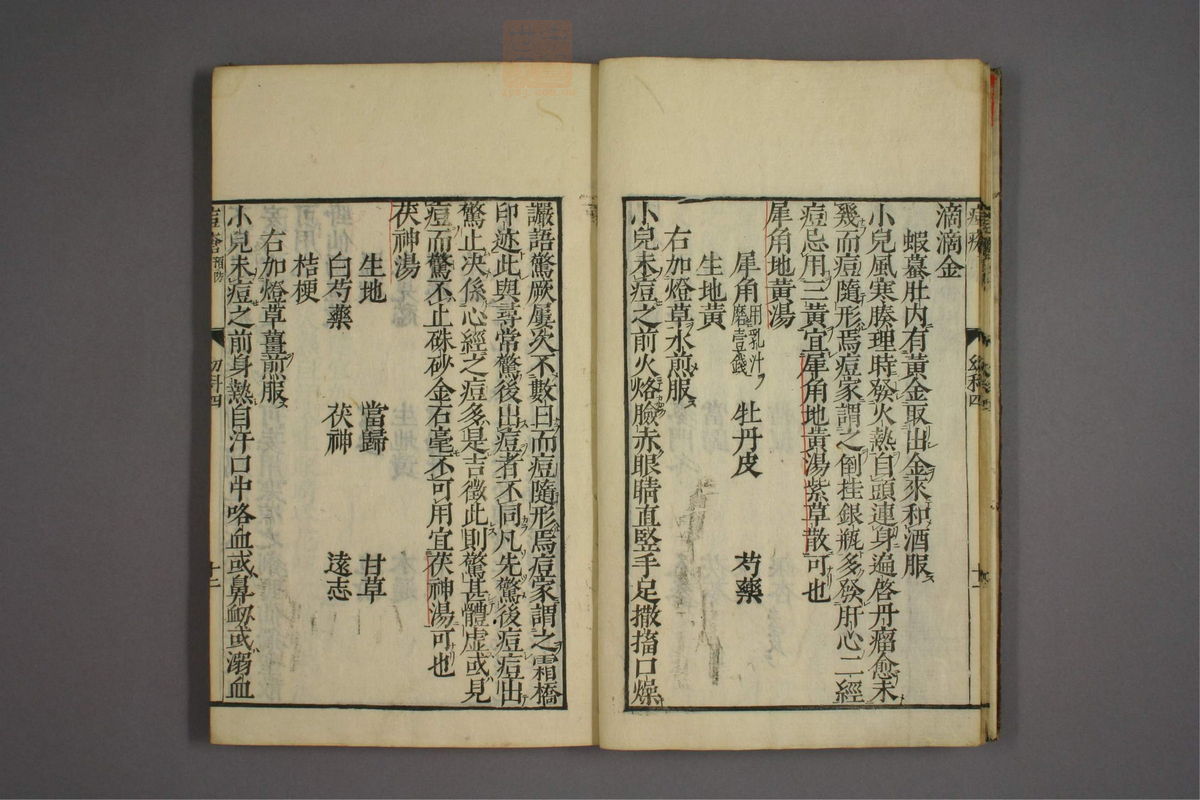 滴滴金
蝦蟇肚内有黃金取出金來和酒服
小兒風寒腠理時發火熱自頭連身遍啓丹瘤愈未
幾而痘隨形焉痘家謂之倒挂銀瓶多發肝心二經
痘忌用三黃宜犀角地黃湯紫草散可也
犀角地黃湯
犀角用乳汁磨壹錢 牡丹皮 芍藥
生地黃
右加燈草水煎服
小兒未痘之前火烙臉赤眼睛直竪手足撒搐口燥
讝語驚厥屢次不數日而痘隨形焉痘家謂之霜橋
印迹此與尋常驚後出痘者不同凡先驚後痘痘出
驚止決係心經之痘多是吉徵此則驚甚體虛或見
痘而驚不止硃砂金石毫不可用宜茯神湯可也
茯神湯
生地 當歸 甘草
白芍藥 茯神 遠志
桔梗
右加燈草薑煎服
小兒未痘之前身熱自汗口中咯血或鼻衂或溺血
痘瘡預防 幼科四 十二